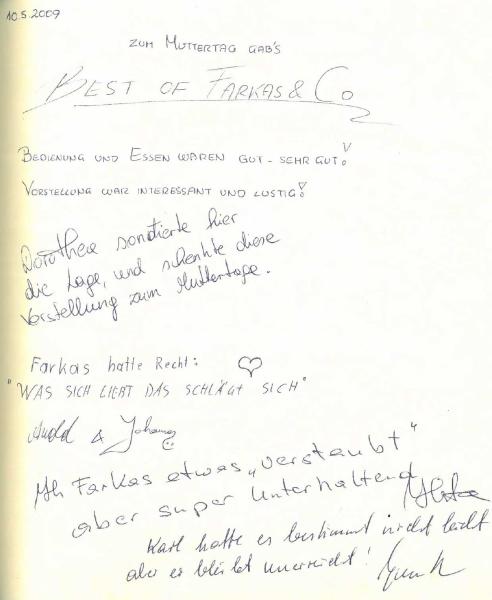 10.5.2009
ZUM MUTTERTAG GAB'S
BEST OF FARKAS & CO
BEDIENUNG UND ESSEN WAREN GUT - SEHR GUT!
VORSTELLUNG WAR INTERESSANT UND LUSTIG!
Dorothea sondierte hier
die Lage, und schenkte diese
Vorstellung zum Muttertage.
Farkas hatte Recht: ♡
"WAS SICH LIEBT DAS SCHLÄGT SICH"
Arnold & Johannes
Farkas etwas „verstaubt"
aber super Unterhaltend
Karl hatte es bestimmt nicht leicht
aber es bleibt unerreicht!